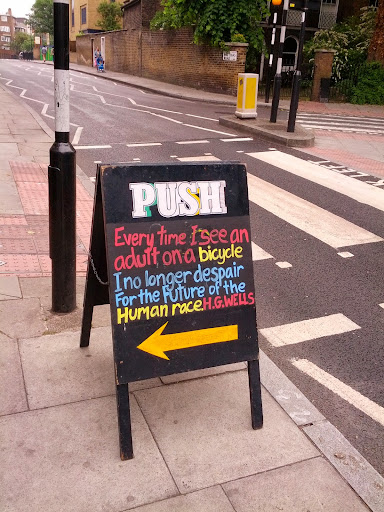 PUSH
Every time I see an
adult on a bicycle
I no longer despair
For the Future of the
Human race. H.G. WELLS